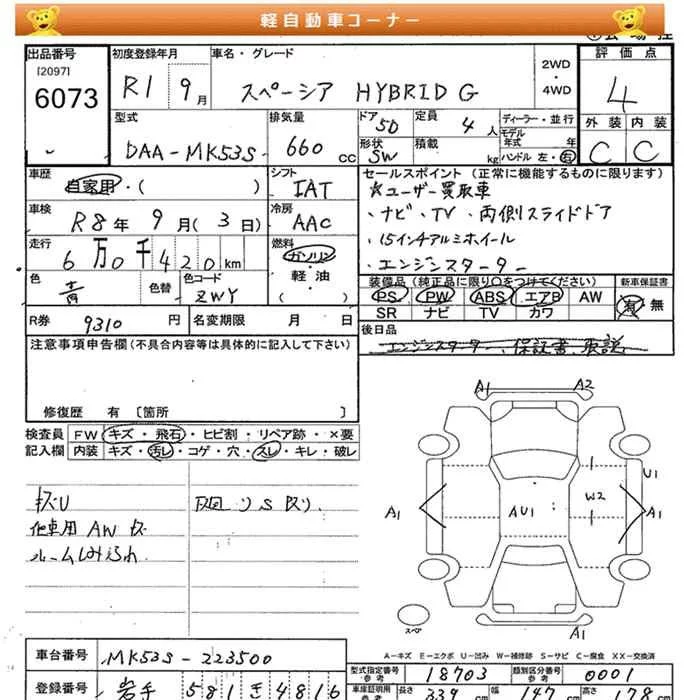 軽自動車コーナー
出品番号 初度登録年月 車名・グレード 2WD ・ 4WD 評価点
[2097]
6073 R1 9月 スペーシア HYBRID G 4
型式 排気量 ドア 5D 定員 4人 ディーラー・並行 外装 内装
DAA-MK53S 660cc 形状 SW 積載 kg モデル年式 年 C C
ハンドル 左・右
車歴 自家用・( ) シフト IAT セールスポイント (正常に機能するものに限ります)
☆ユーザー買取車
車検 R8年 9月(3日) 冷房 AAC ・ナビ・TV・両側スライドドア
走行 6万0千420km 燃料 ガソリン ・15インチアルミホイール
軽・油 ・エンジンスターター
( )
色 青 色替 色コード ZWY 装備品 (純正品に限り〇をつけてください) 新車保証書
PS PW ABS エアB AW 有・無
SR ナビ TV カワ
R券 9310円 名変期限 月 日 後日品
エンジンスターター、保証書、取説
注意事項申告欄(不具合内容等は具体的に記入して下さい)
修復歴 有 [箇所 ]
検査員 FW キズ・飛石・ヒビ割・リペア跡・×要
記入欄 内装 キズ・汚レ・コゲ・穴・スレ・キレ・破レ
他車用 AW キズ
A1 A2
U1
A1 AU1 W2 A1
スペア A1
A-キズ E-エクボ U-凹み W-補修跡 S-サビ C-腐食 XX-交換済
車台番号 MK53S-223500 型式指定番号 参考 18703 類別区分番号 参考 0001
登録番号 岩手 581 き 4816 車庫証明用 参考 長さ 339 cm 幅 147 cm 高さ 178 cm